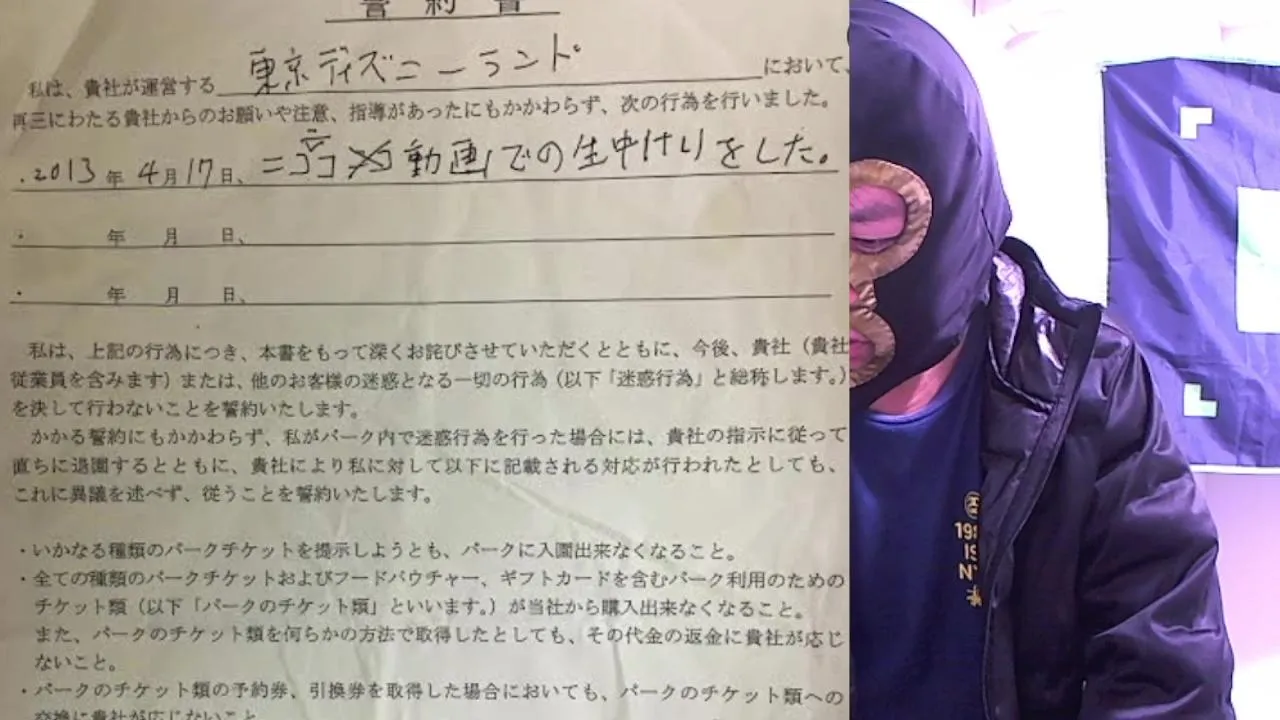 誓約書
私は、貴社が運営する 東京ディズニーランド において、
再三にわたる貴社からのお願いや注意、指導があったにもかかわらず、次の行為を行いました。
・2013年 4月 17日、ニコニコ動画での生中けいをした。
・ 年 月 日、
・ 年 月 日、
私は、上記の行為につき、本書をもって深くお詫びさせていただくとともに、今後、貴社（貴社
従業員を含みます）または、他のお客様の迷惑となる一切の行為（以下「迷惑行為」と総称します。）
を決して行わないことを誓約いたします。
かかる誓約にもかかわらず、私がパーク内で迷惑行為を行った場合には、貴社の指示に従って
直ちに退園するとともに、貴社により私に対して以下に記載される対応が行われたとしても、
これに異議を述べず、従うことを誓約いたします。
・いかなる種類のパークチケットを提示しようとも、パークに入園出来なくなること。
・全ての種類のパークチケットおよびフードバウチャー、ギフトカードを含むパーク利用のための
チケット類（以下「パークのチケット類」といいます。）が当社から購入出来なくなること。
また、パークのチケット類を何らかの方法で取得したとしても、その代金の返金に貴社が応じ
ないこと。
・パークのチケット類の予約券、引換券を取得した場合においても、パークのチケット類への
交換に貴社が応じないこと